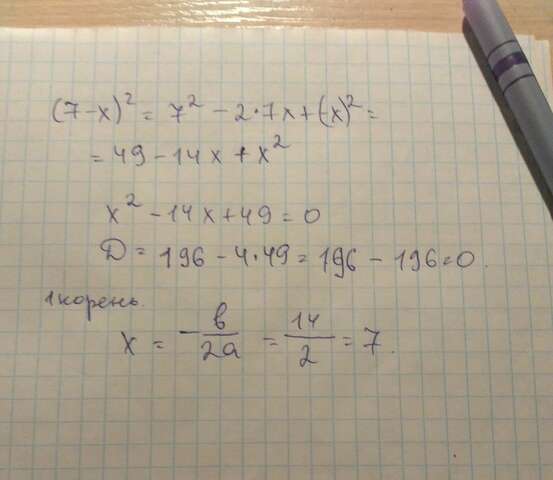 (7-x)² = 7² - 2·7x + (-x)² =
= 49 - 14x + x²
x² - 14x + 49 = 0
D = 196 - 4·49 = 196 - 196 = 0.
1 корень.
x = -b/2a = 14/2 = 7.